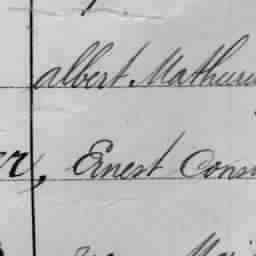 albert Mathur
er, Ernest Cons